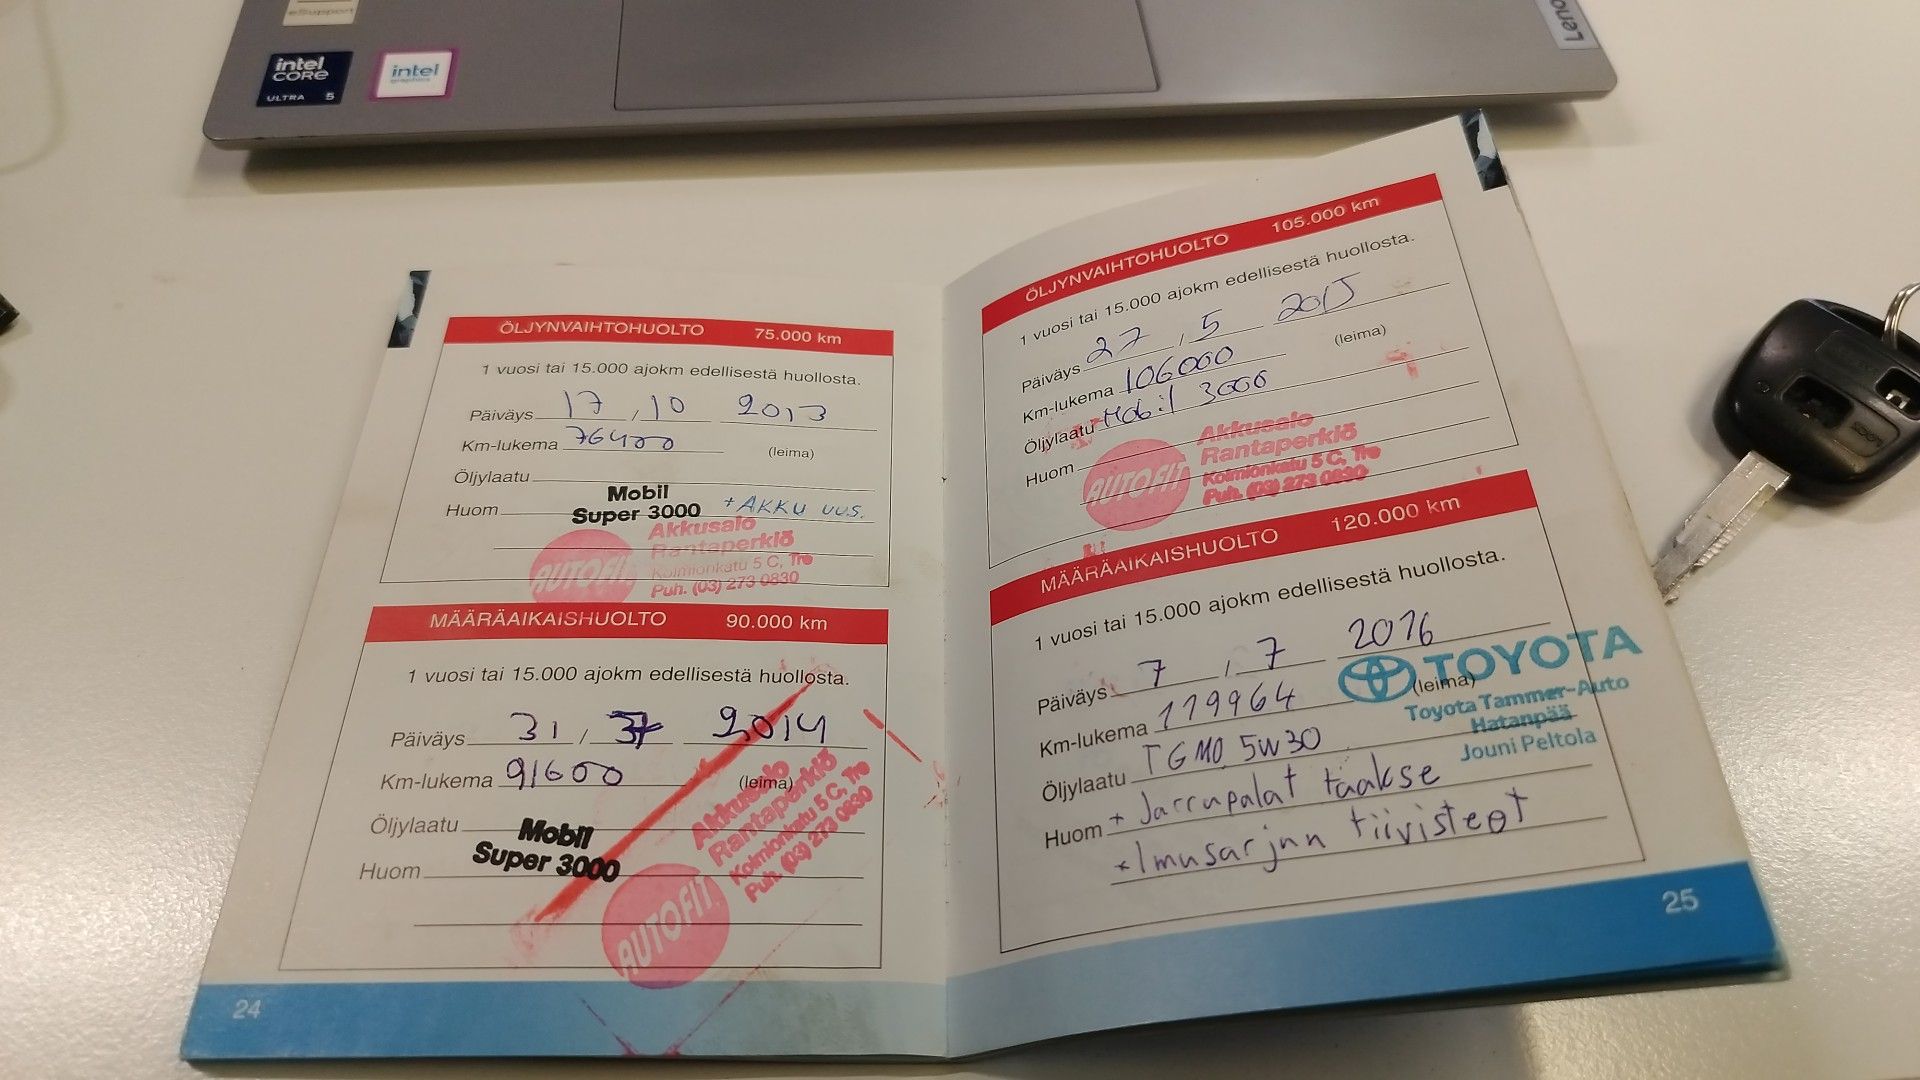 eSupport
intel
CORE
ULTRA 5
intel
graphics
Leno
ÖLJYNVAIHTOHUOLTO 75.000 km
1 vuosi tai 15.000 ajokm edellisestä huollosta.
Päiväys 17 / 10 2013
Km-lukema 76400 (leima)
Öljylaatu
Mobil
Huom Super 3000 + AKKU UUS.
AUTOFIT
Akkusalo
Rantaperkiö
Kolmionkatu 5 C, Tre
Puh. (03) 273 0830
MÄÄRÄAIKAISHUOLTO 90.000 km
1 vuosi tai 15.000 ajokm edellisestä huollosta.
Päiväys 31 / 2014
Km-lukema 91600 (leima)
Öljylaatu Mobil
Super 3000
Huom
AUTOFIT
Akkusalo
Rantaperkiö
Kolmionkatu 5 C, Tre
Puh. (03) 273 0830
24
ÖLJYNVAIHTOHUOLTO 105.000 km
1 vuosi tai 15.000 ajokm edellisestä huollosta.
Päiväys 27 / 5 2015
Km-lukema 106000 (leima)
Öljylaatu Mobil 3000
Huom
AUTOFIT
Akkusalo
Rantaperkiö
Kolmionkatu 5 C, Tre
Puh. (03) 273 0830
MÄÄRÄAIKAISHUOLTO 120.000 km
1 vuosi tai 15.000 ajokm edellisestä huollosta.
Päiväys 7 / 7 2016
Km-lukema 119964 (leima)
Öljylaatu TGMO 5W30
Huom + Jarrupalat taakse
+ Imusarjan tiivisteet
TOYOTA
Toyota Tammer-Auto
Hatanpää
Jouni Peltola
25